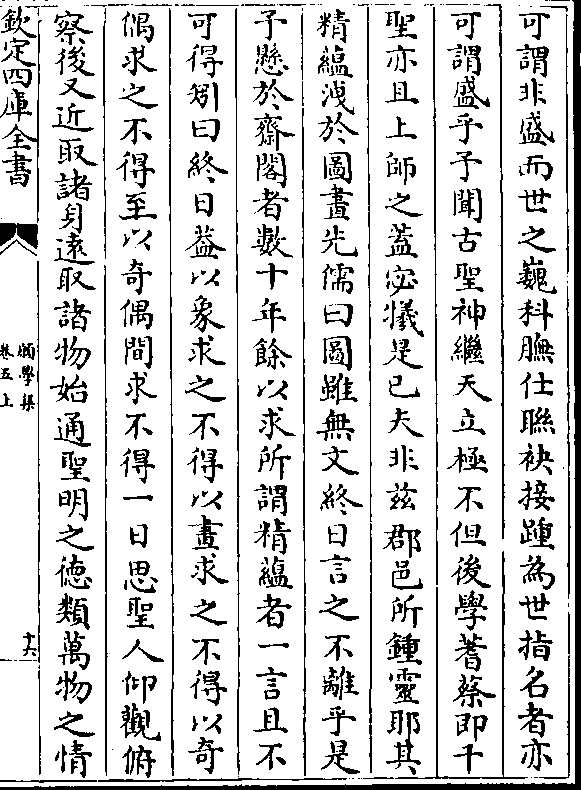 可謂非盛而世之巍科膴仕聯袂接踵為世指名者亦
可謂盛乎予聞古聖神繼天立極不但後學蓍蔡即千
聖亦且上師之蓋宓犧是已夫非兹郡邑所鍾靈耶其
精蘊洩於圖畫先儒曰圖雖無文終日言之不離乎是
予懸於齋閣者數十年餘以求所謂精蘊者一言且不
可得矧曰終日葢以象求之不得以畫求之不得以奇
偶求之不得至以奇偶間求不得一日思聖人仰觀俯
察後又近取諸身遠取諸物始通聖明之德類萬物之情
欽定四庫全書
卷五上
十六